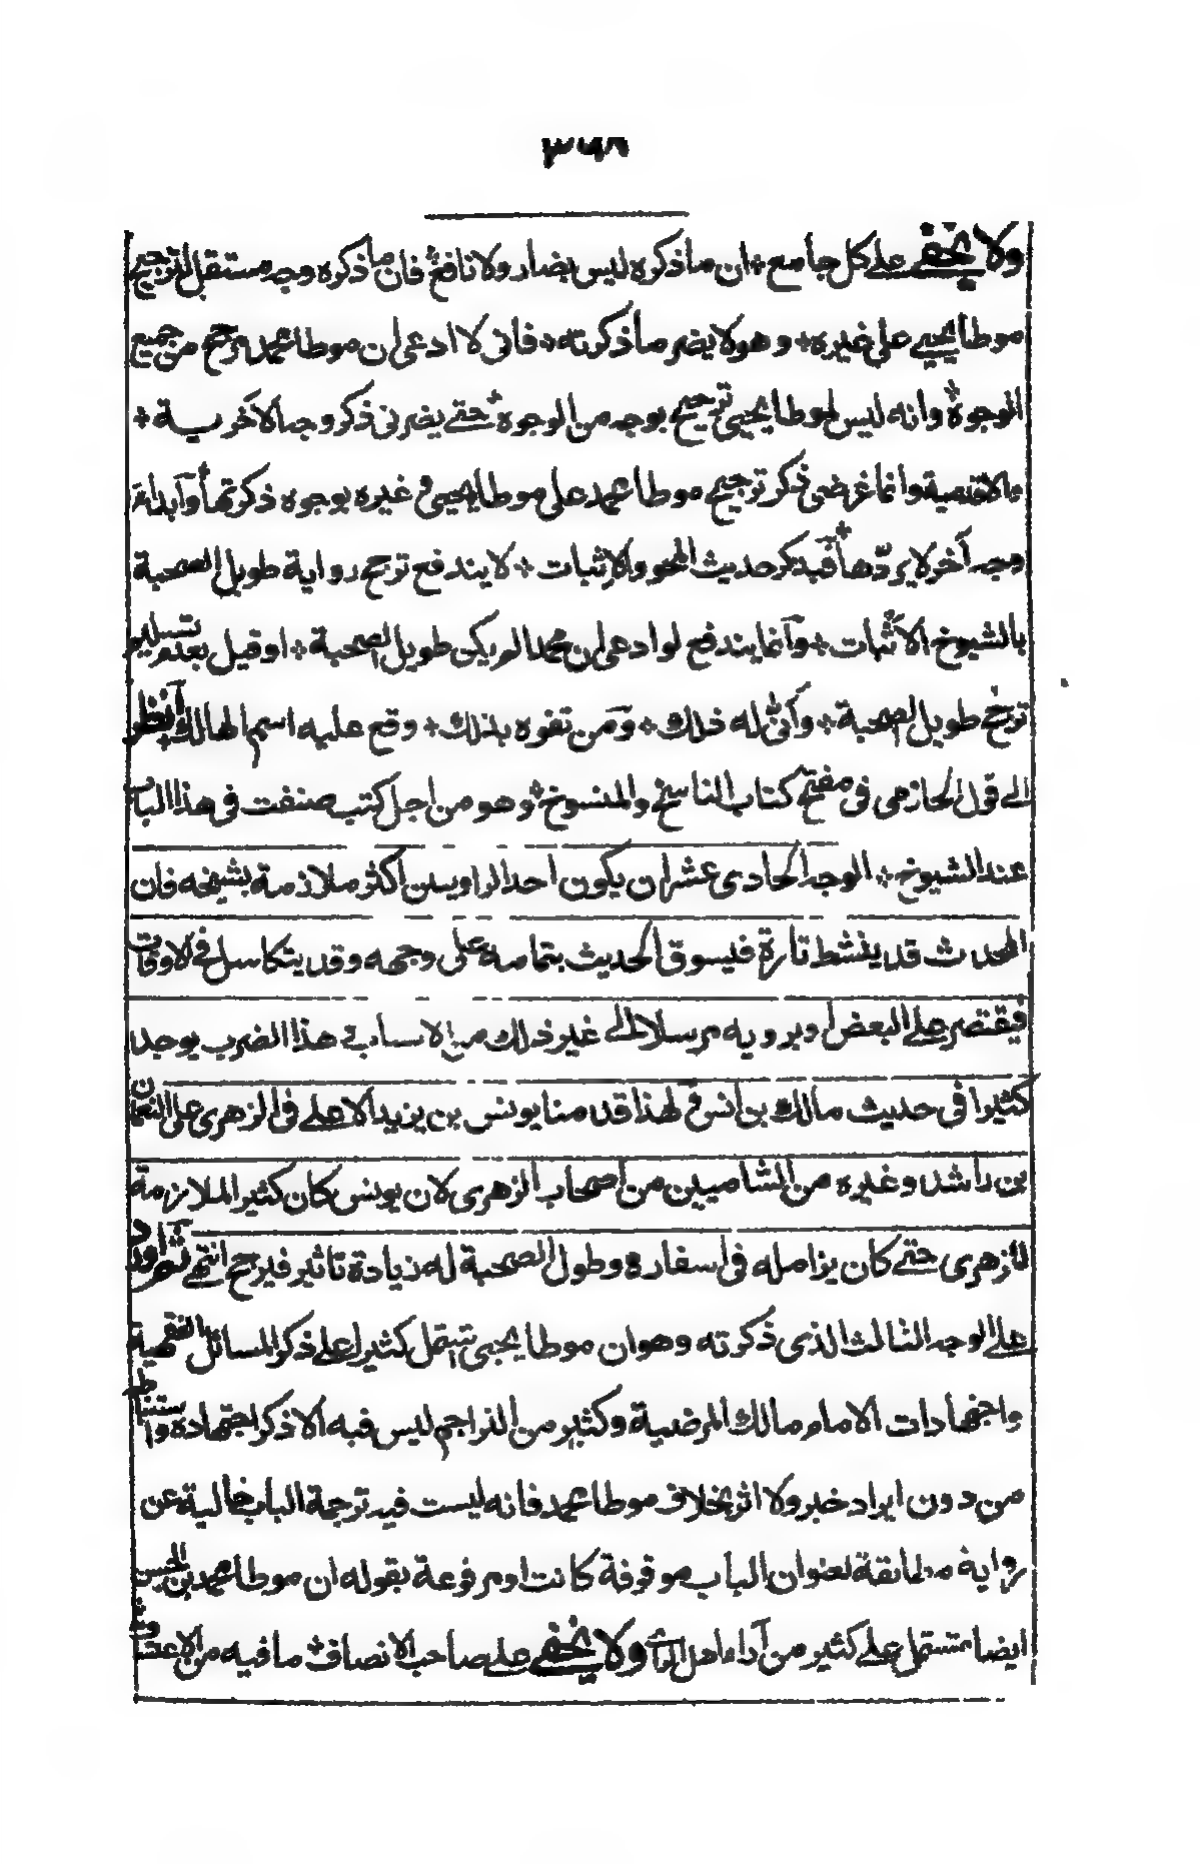 ٣٦٨
ولا يخفى على كل جامع + ان ما ذكره ليس بضار ولا نافع + فان ما ذكره وجه مستقل لترجيح
موطا يحيى على غيره + وهو لا يضر ما ذكرته + فانى لا ادعى ان موطا محمد مرجح من جميع
الوجوه + وانه ليس لموطا يحيى ترجيح بوجه من الوجوه + حتى يضرنى ذكر وجه الاخر سية +
بالاقدمية وانما غرضى ذكر ترجيح موطا محمد على موطا يحيى فى غيره بوجوه ذكرتها + وابداء
وجه آخر لا يردها + فبذكر حديث المحو والاثبات + لا يندفع ترجح رواية طويل الصحبة
بالشيوخ الاثبات + وانما يندفع لو ادعى ان محمدا لم يكن طويل الصحبة + او قيل بعدم تسليم
ترجح طويل الصحبة + وانى له ذلك + ومن تفوه بذلك + وقع عليه اسم الهالك + انظر
الى قول الحازمى فى مفتتح كتاب الناسخ والمنسوخ + وهو من اجل كتب صنفت فى هذا الباب
عند الشيوخ + الوجه الحادى عشر ان يكون احد الراويين اكثر ملازمة بشيخه فان
المحدث قد ينشط تارة فيسوق الحديث بتمامه على وجهه وقد يتكاسل فى الاوقات
فيقتصر على البعض او يرويه مرسلا الى غير ذلك من الاسباب هذا الضرب يوجد
كثيرا فى حديث مالك بن انس فى لهذا قدمنا يونس بن يزيد الايلى فى الزهرى على النعمان
بن راشد وغيره من الشاميين من اصحاب الزهرى لان يونس كان كثير الملازمة
للزهرى حتى كان يزامله فى اسفاره وطول الصحبة له زيادة تاثير فيرجح انتهى + ثم اورد
على الوجه الثالث الذى ذكرته وهو ان موطا يحيى تشتمل كثيرا على ذكر المسائل الفقهية
واجتهادات الامام مالك المرضية وكثير من التراجم ليس فيه الا ذكر اجتهاده واستنباطه
من دون ايراد خبر ولا اثر بخلاف موطا محمد فانه ليست فيه ترجمة الباب خالية عن
رواية مطابقة لعنوان الباب موقوفة كانت او مرفوعة بقوله ان موطا محمد بن الحسن
ايضا مشتمل على كثير من آراء اهل الراى ولا يخفى على صاحب الانصاف + ما فيه من الاعتساف